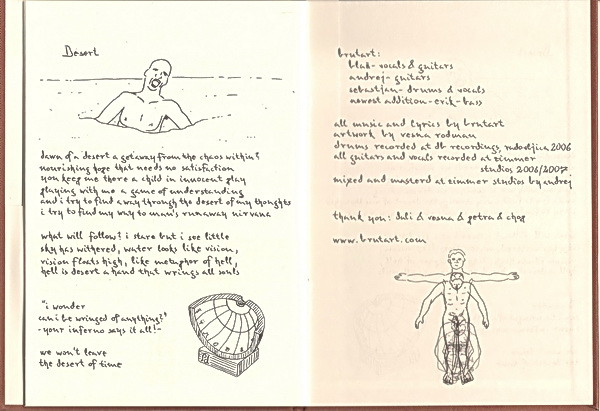 Desert
dawn of a desert a getaway from the chaos within?
nourishing hope that needs no satisfaction
you keep me there a child in innocent play
playing with me a game of understanding
and i try to find a way through the desert of my thoughts
i try to find my way to man's runaway nirvana
what will follow? i stare but i see little
sky has withered, water looks like vision,
vision floats high, like metaphor of hell,
hell is desert a hand that wrings all souls
"i wonder
can i be wringed of anything?"
-your inferno says it all!-
we won't leave
the desert of time
brutart:
blaž- vocals & guitars
andrej- guitars
sebastjan- drums & vocals
newest addition- erik- bass
all music and lyrics by brutart
artwork by vesna rodman
drums recorded at db recordings, 2006
all guitars and vocals recorded at zimmer
studios 2006/2007
mixed and masterd at zimmer studios by andrej
thank you: & vesna & petra & chog
www.brutart.com